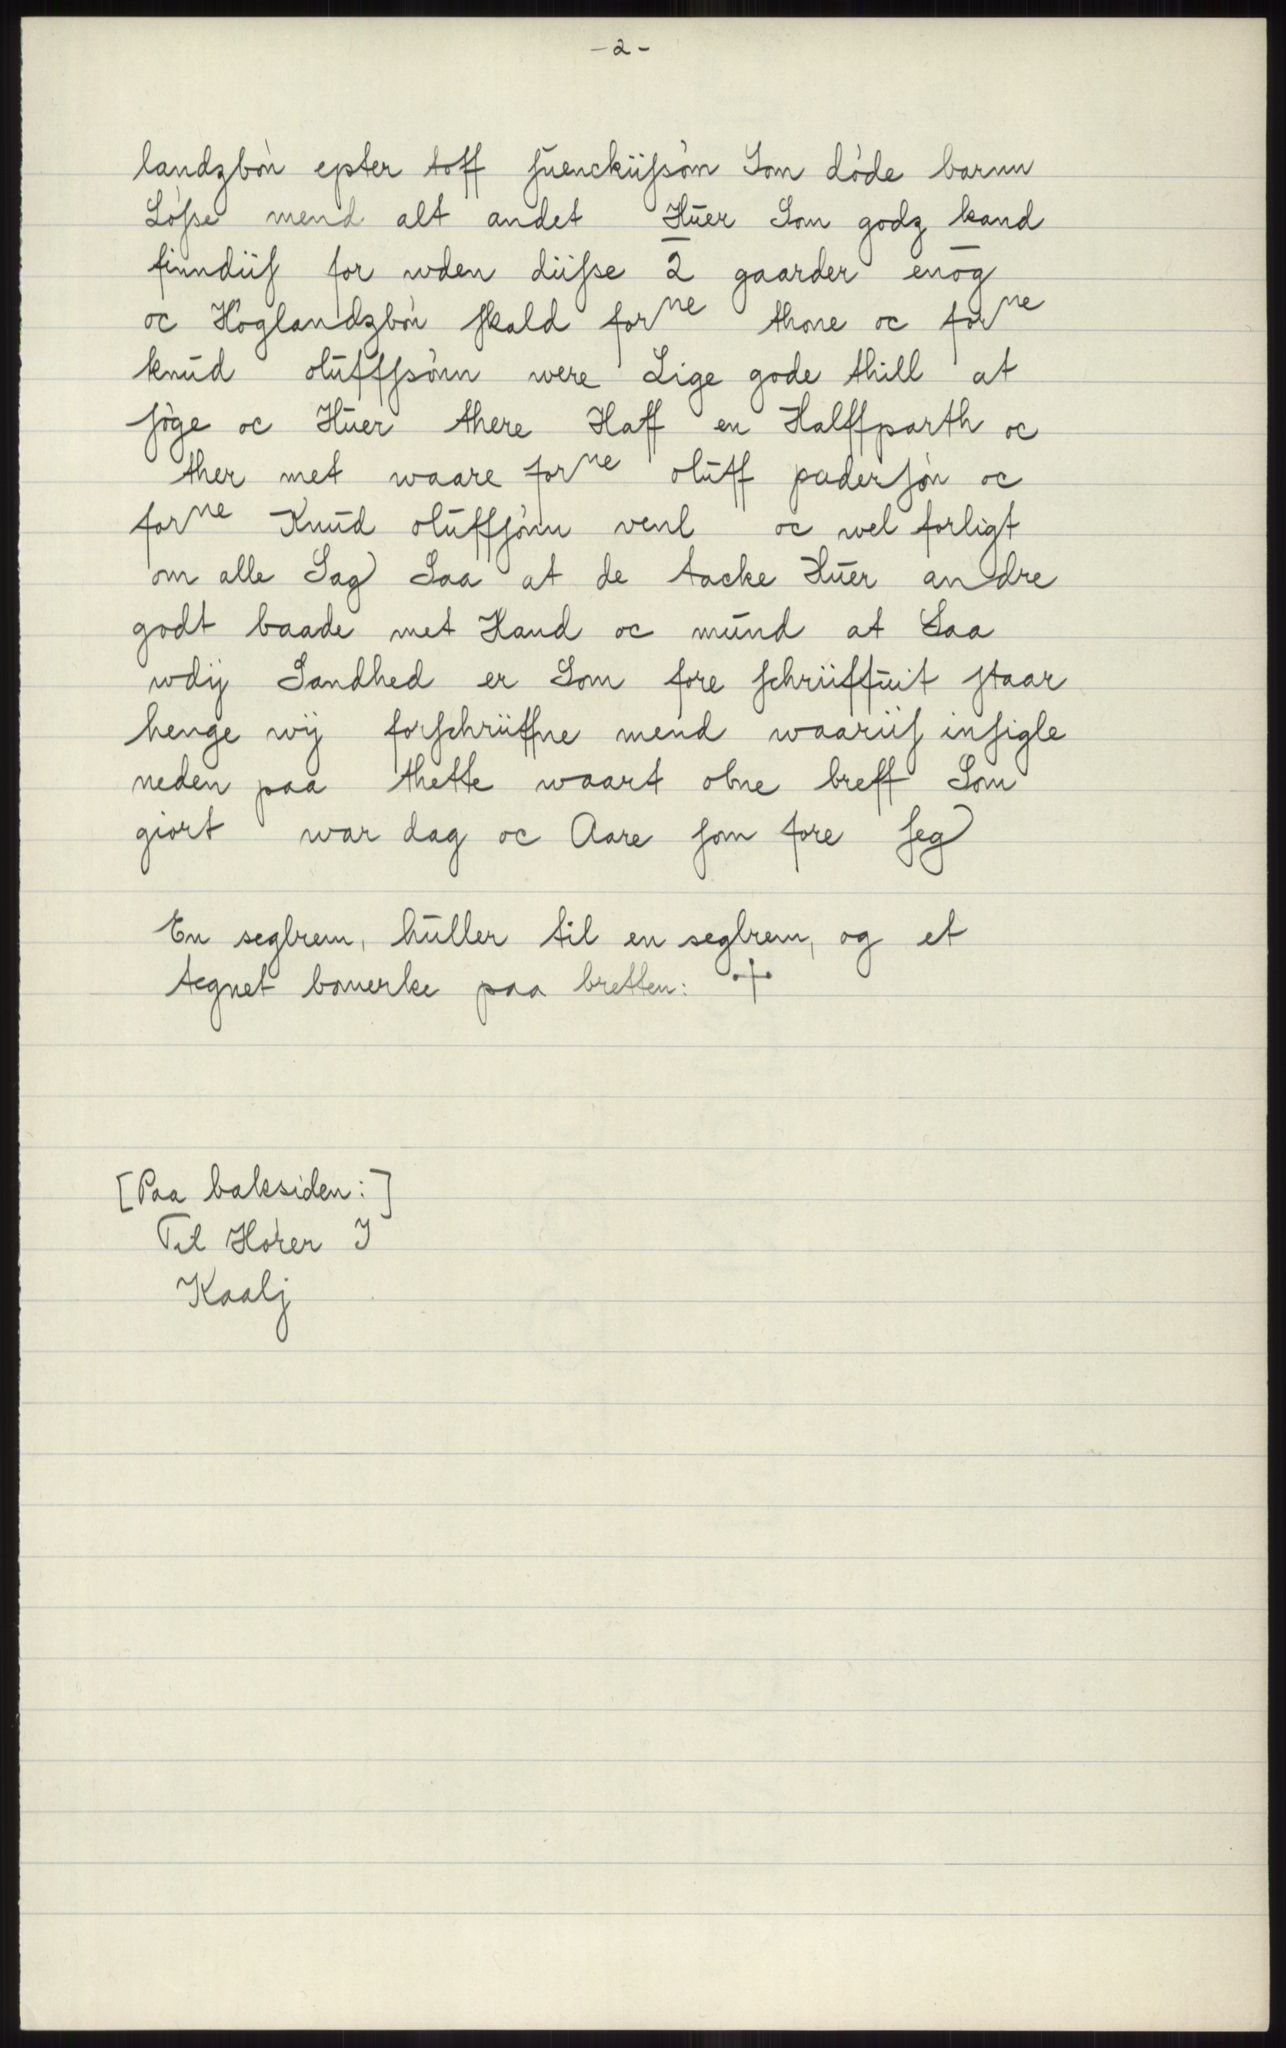 -2-
landzbön epter toff suenckiissön Som döde barnn
Lösse mend alt andet Huer Som godz kand
finndiis for wden diisse 2 gaarder enog
oc Höglandzbön skald forne thore oc forne
knud oluffsönn were Lige gode thill at
söge oc Huer there Haff en Halffparth oc
ther met waare forne oluff pædersøn oc
forne Knud oluffsönn venl oc wel forligt
om alle Sag Saa at de tacke Huer andre
godt baade met Hand oc mund at Saa
wdij Sandhed er Som fore schriiffuit staar
henge wij forschriiffne mend waariis insigle
neden paa thette waart obne breff Som
giort war dag oc Aare som fore seg
En seglrem, huller til en seglrem, og et
tegnet bomerke paa bretten:
[Paa baksiden:]
Til Hörer J
Kaalj